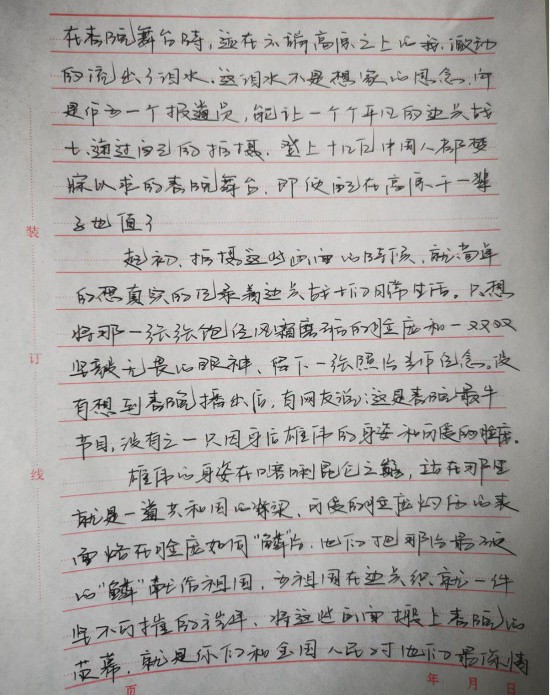 在春晚舞台时，远在云端高原之上的我，激动
的流出了泪水，这泪水不是想家的思念，而
是作为一个报道员，能让一个个平凡的边关战
士，通过自己的拍摄，登上十几亿中国人都梦
寐以求的春晚舞台，即使自己在高原干一辈
子也值了
起初，拍摄这些画面的时候，就简单
的想真实的记录着边关战士们日常生活。只想
将那一张张饱经风霜磨砺的脸庞和一双双
坚毅无畏的眼神，留下一张照片当作纪念。没
有想到春晚播出后，有网友说：这是春晚最牛
节目，没有之一只因身后雄伟的身姿和可爱的脸庞。
雄伟的身姿在喀喇昆仑之巅，站在那里
就是一道共和国的脊梁，可爱的脸庞灼伤的表
面烙在脸庞如同“鳞”片，他们把那片最硬
的“鳞”献给祖国，为祖国在边关织就一件
坚不可摧的铠甲，将这些画面搬上春晚的
荧幕，就是你们和全国人民对他们最深情
装
订
线
页 年 月 日